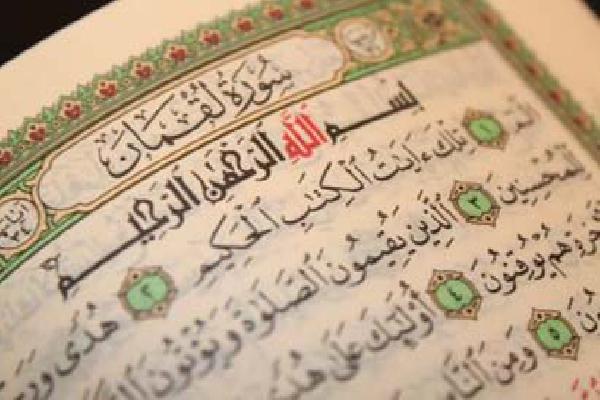 سُورَةُ لُقْمَان
بِسْمِ اللَّهِ الرَّحْمَٰنِ الرَّحِيمِ
الٓمٓ ١ تِلْكَ ءَايَٰتُ الْكِتَٰبِ الْحَكِيمِ ٢ هُدًى وَرَ
لِلْمُحْسِنِينَ ٣ الَّذِينَ يُقِيمُونَ الصَّلَوٰةَ وَيُؤْتُونَ
هُمْ يُوقِنُونَ ٤ أُوْلَٰٓئِكَ عَلَىٰ هُدًى
ونَ ٥ وَمِنَ النَّاسِ